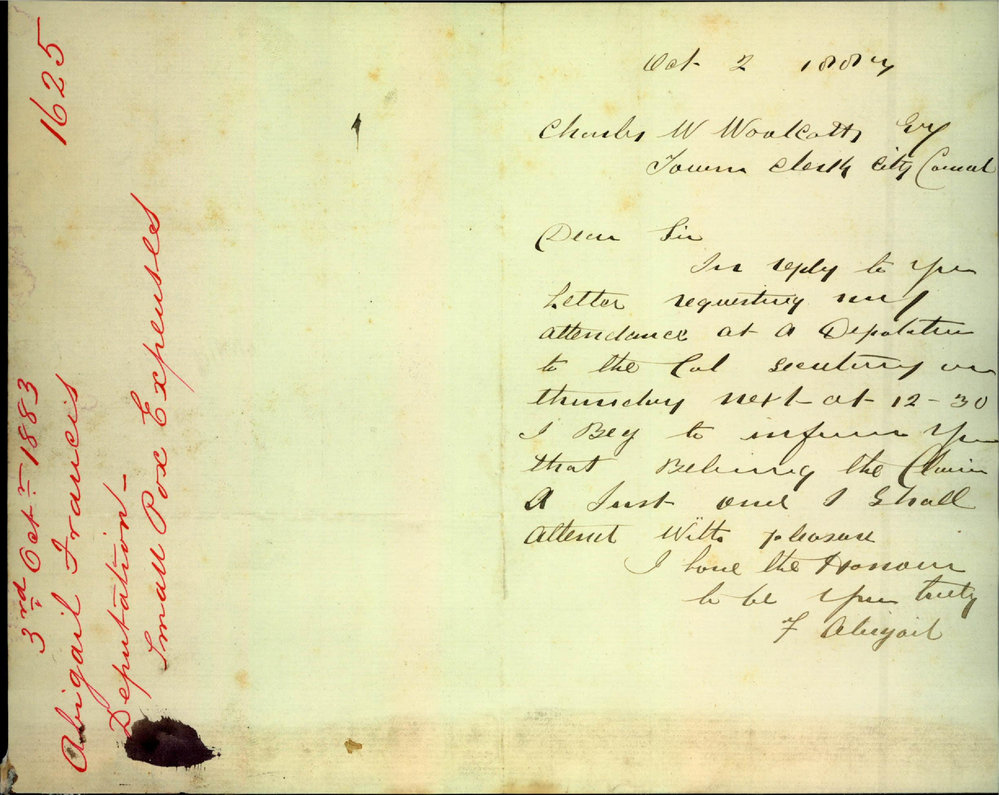 1625
3rd Octr 1883
Abigail Francis
Deputation -
Small Pox Expenses
Oct 2
Charles W Woolcott Esq
Town Clerk City Council
Dear Sir
In reply to your
Letter requesting my
attendance at A Deputation
to the Col Secretary on
thursday next at 12-30
I Beg to inform you
that Believing the Claim
A Just one I Shall
Attend With pleasure
I have the Honour
to be your truly
F Abigail